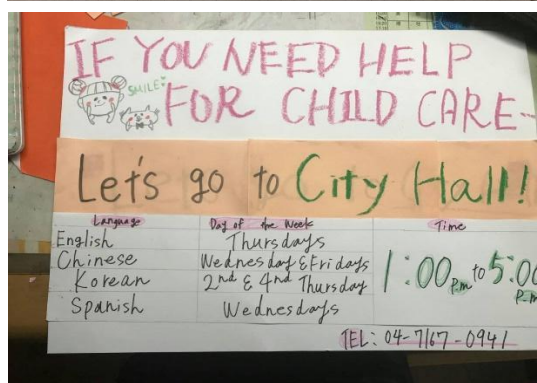 IF YOU NEED HELP
SMILE
FOR CHILD CARE--
Let's go to City Hall!
Language Day of the Week Time
English Thursdays
Chinese Wednesday & Fridays
Korean 2nd & 4nd Thursday
Spanish Wednesdays
1:00 p.m to 5:00 p.m
TEL: 04-7167-0941